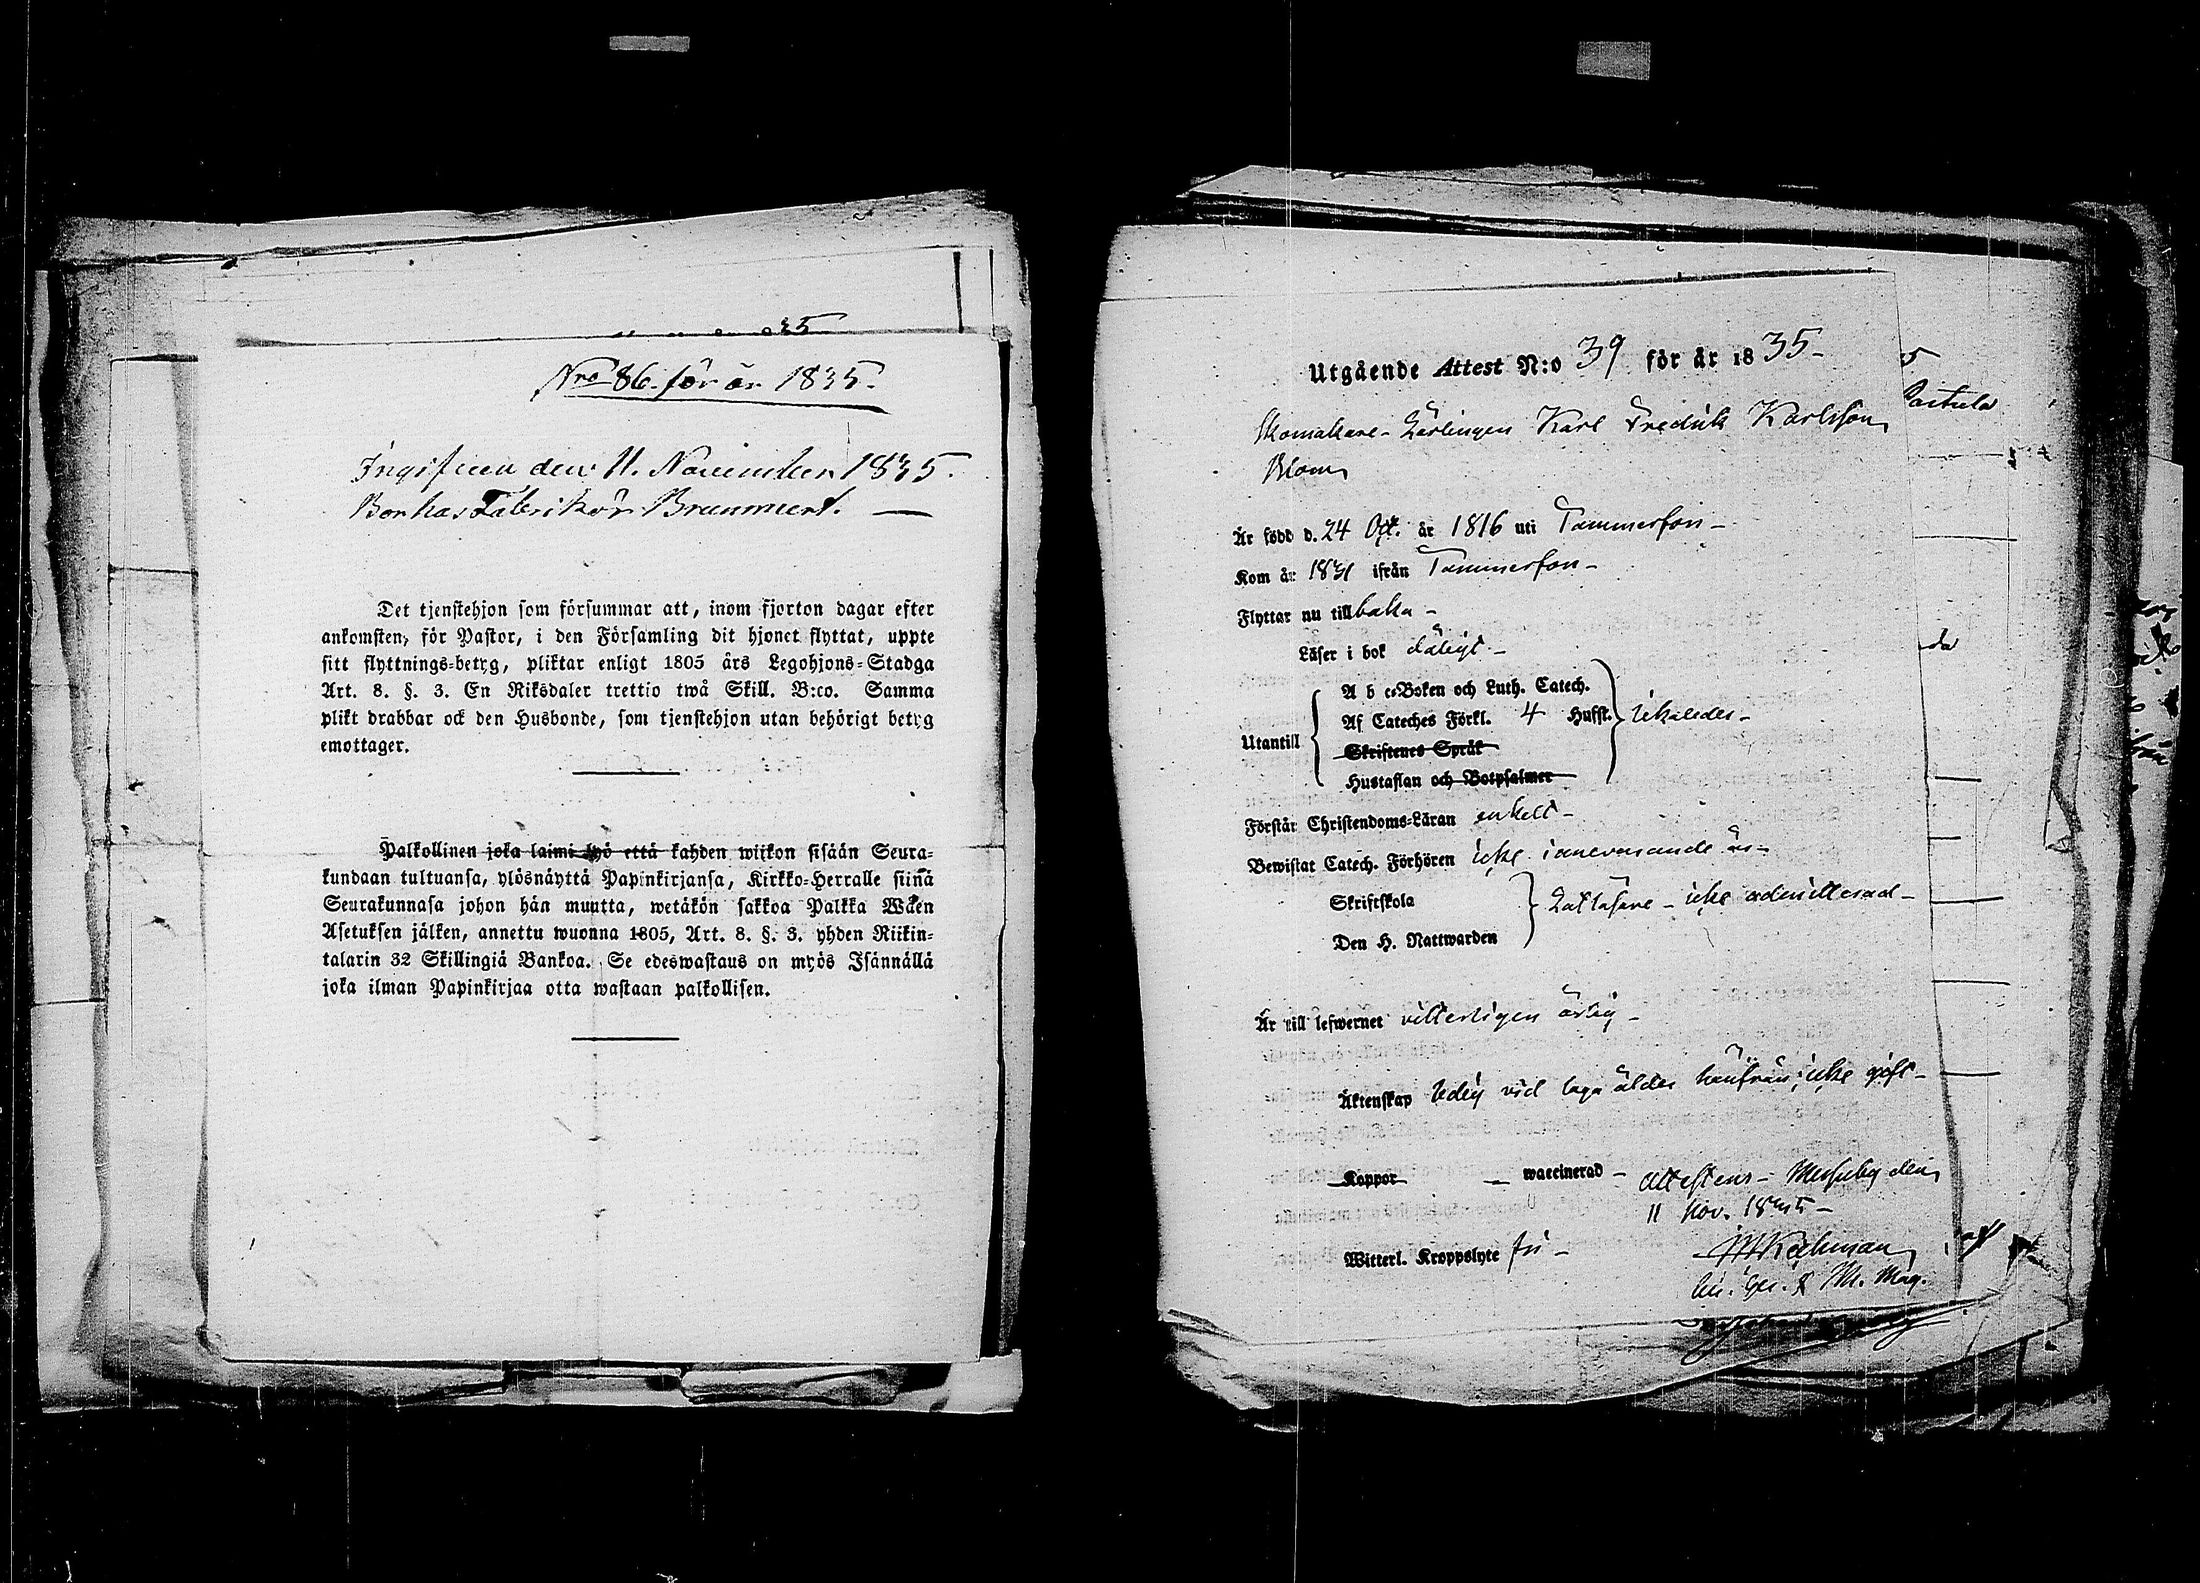 Nro 86. för år 1835.
Ingifven den 11. November 1835.
Bor hos Fabrikör Brummert.
Det tjenstehjon som försummar att, inom fjorton dagar efter
ankomsten, för Pastor, i den Församling dit hjonet flyttat, uppte
sitt flyttnings-betyg, pliktar enligt 1805 års Legohjons-Stadga
Art. 8. §. 3. En Riksdaler trettio twå Skill. B:co. Samma
plikt drabbar ock den Husbonde, som tjenstehjon utan behörigt betyg
emottager.
Palkollinen joka laimi lyö että kahden wiikon sisään Seura-
kundaan tultuansa, ylösnäyttä Papinkirjansa, Kirkko-Herralle siinä
Seurakunnasa johon hän muutta, wetäkön sakkoa Palkka Wäen
Asetuksen jälken, annettu wuonna 1805, Art. 8. §. 3. yhden Riikin-
talarin 32 Skillingiä Bankoa. Se edeswastaus on myös Isännällä
joka ilman Papinkirjaa otta wastaan palkollisen.
Utgående Attest N:o 39 för år 1835-
Skomakare-Lärlingen Karl Fredrik Karlsson
Blom
Är född d. 24 Oct. år 1816 uti Tammerfors-
Kom år 1831 ifrån Tammerfors-
Flyttar nu tillbaka-
Läser i bok dåligt-
A b c-Boken och Luth. Catech.
Af Cateches Förkl. 4 Hufst. likaledes-
Utantill
Skriftenes Språk
Hustaflan och Botpsalmer
Förstår Christendoms-Läran enkelt-
Bewistat Catech. Förhören icke innevarande år-
Skriftskola
Laktäsare - icke admitterad-
Den H. Nattwarden
Är till lefwernet vitterligen ärlig-
Äktenskap ledig vid laga ålder härifrån; icke gift-
Koppor - waccinerad - attesteras - Messuby den
11 Nov. 1835-
Witterl. Kroppslyte fri-